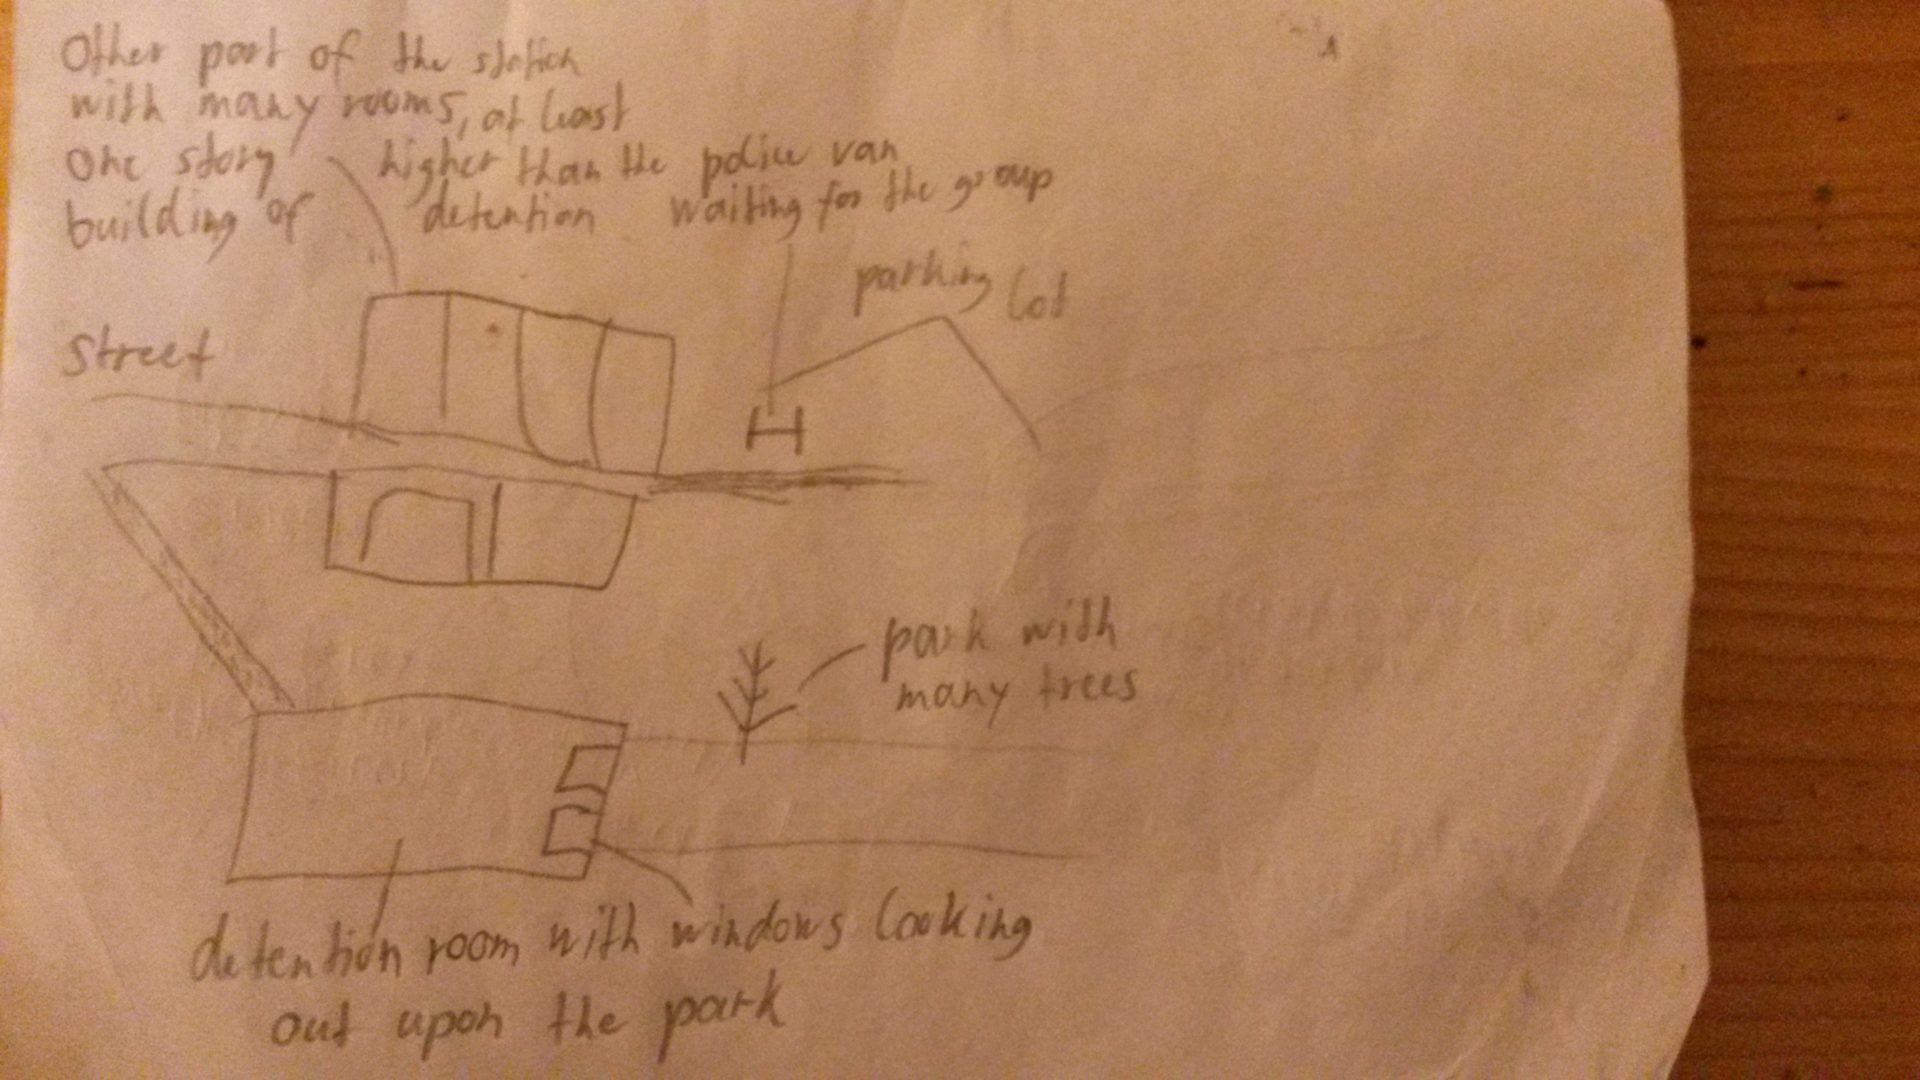 Other part of the station
with many rooms, at least
one story higher than the
building of detention
police van
waiting for the group
parking lot
Street
park with
many trees
detention room with windows looking
out upon the park